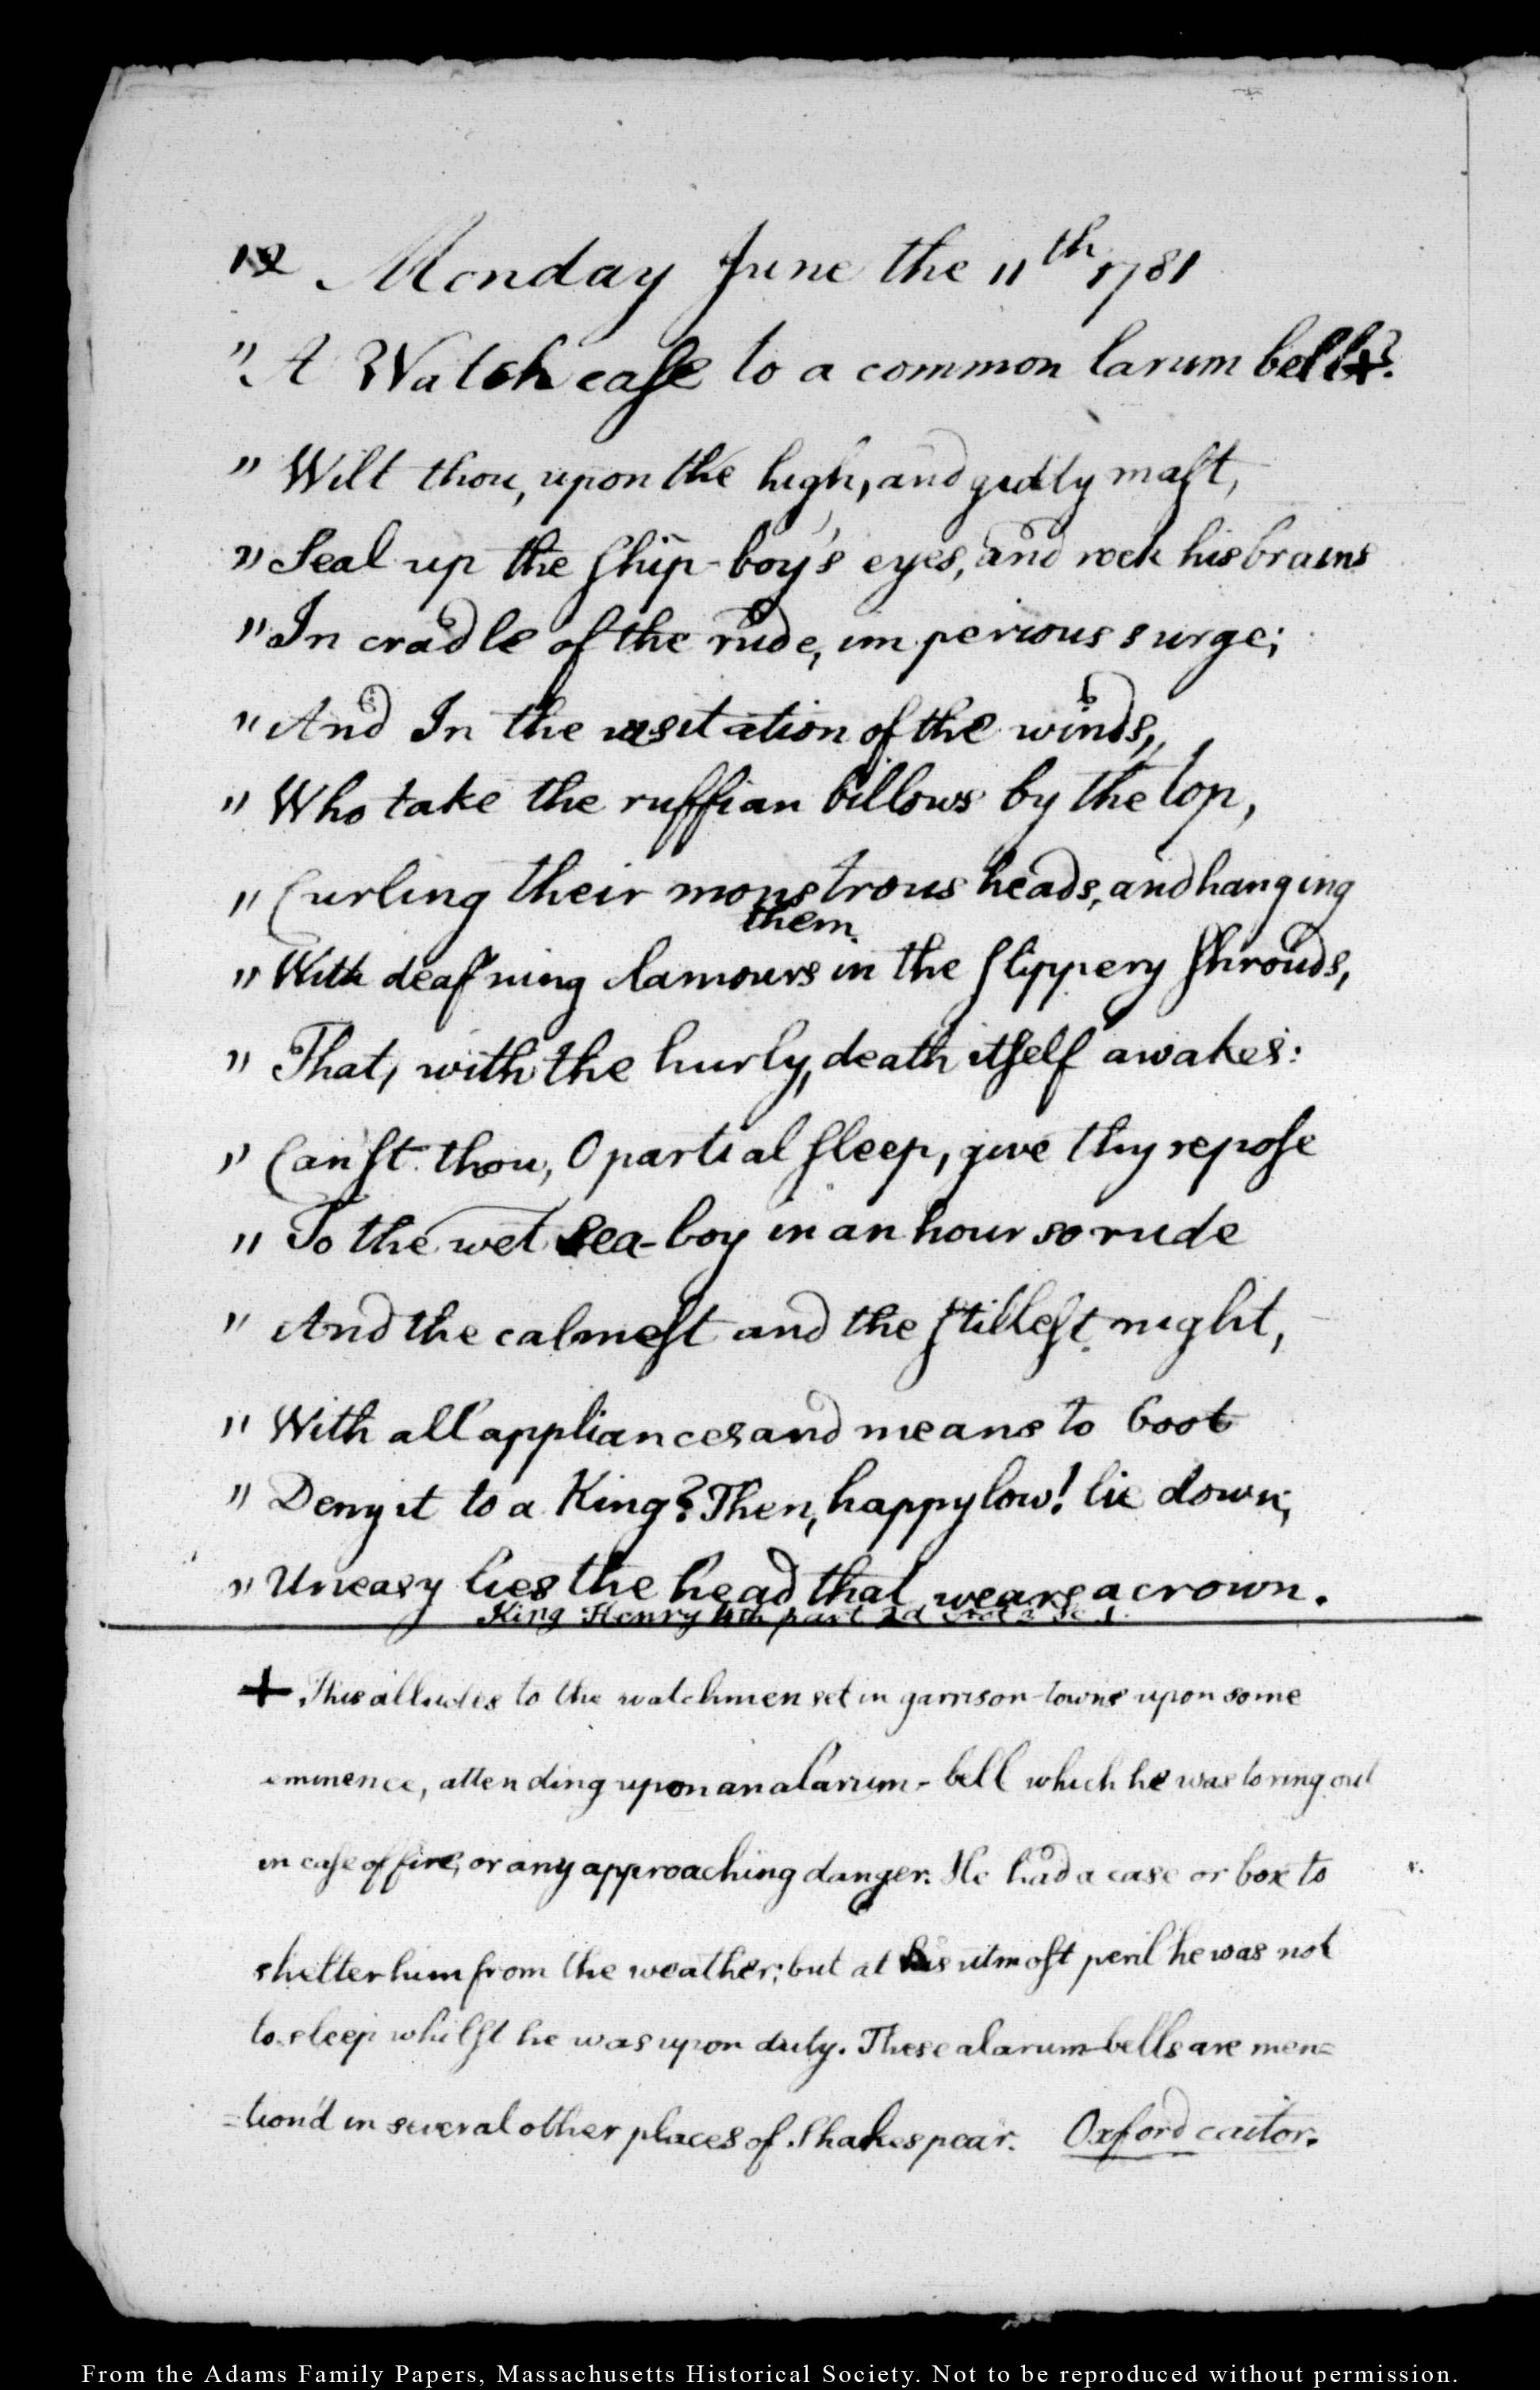 12 Monday June the 11th 1781
" A Watch case to a common larum bell+?
" Wilt thou, upon the high, and giddy mast,
" Seal up the ship-boy's eyes, and rock his brains
" In cradle of the rude, imperious surge;
" And In the visitation of the winds,
" Who take the ruffian billows by the top,
" Curling their monstrous heads, and hanging
them
" With deaf'ning clamours in the slippery shrouds,
" That, with the hurly, death itself awakes:
" Can'st thou, O partial sleep, give thy repose
" To the wet sea-boy in an hour so rude
" And the calmest and the stillest night,
" With all appliances and means to boot
" Deny it to a King? Then, happy low! lie down;
" Uneasy lies the head that wears a crown.
King Henry 4th part 2d Act 3 Sc 1.
+ This alludes to the watchmen set in garrison-towns upon some
eminence, attending upon an alarum-bell which he was to ring out
in case of fire, or any approaching danger. He had a case or box to
shelter him from the weather; but at his utmost peril he was not
to sleep whilst he was upon duty. These alarum-bells are men=
=tion'd in several other places of Shakespear. Oxford editor.
From the Adams Family Papers, Massachusetts Historical Society. Not to be reproduced without permission.